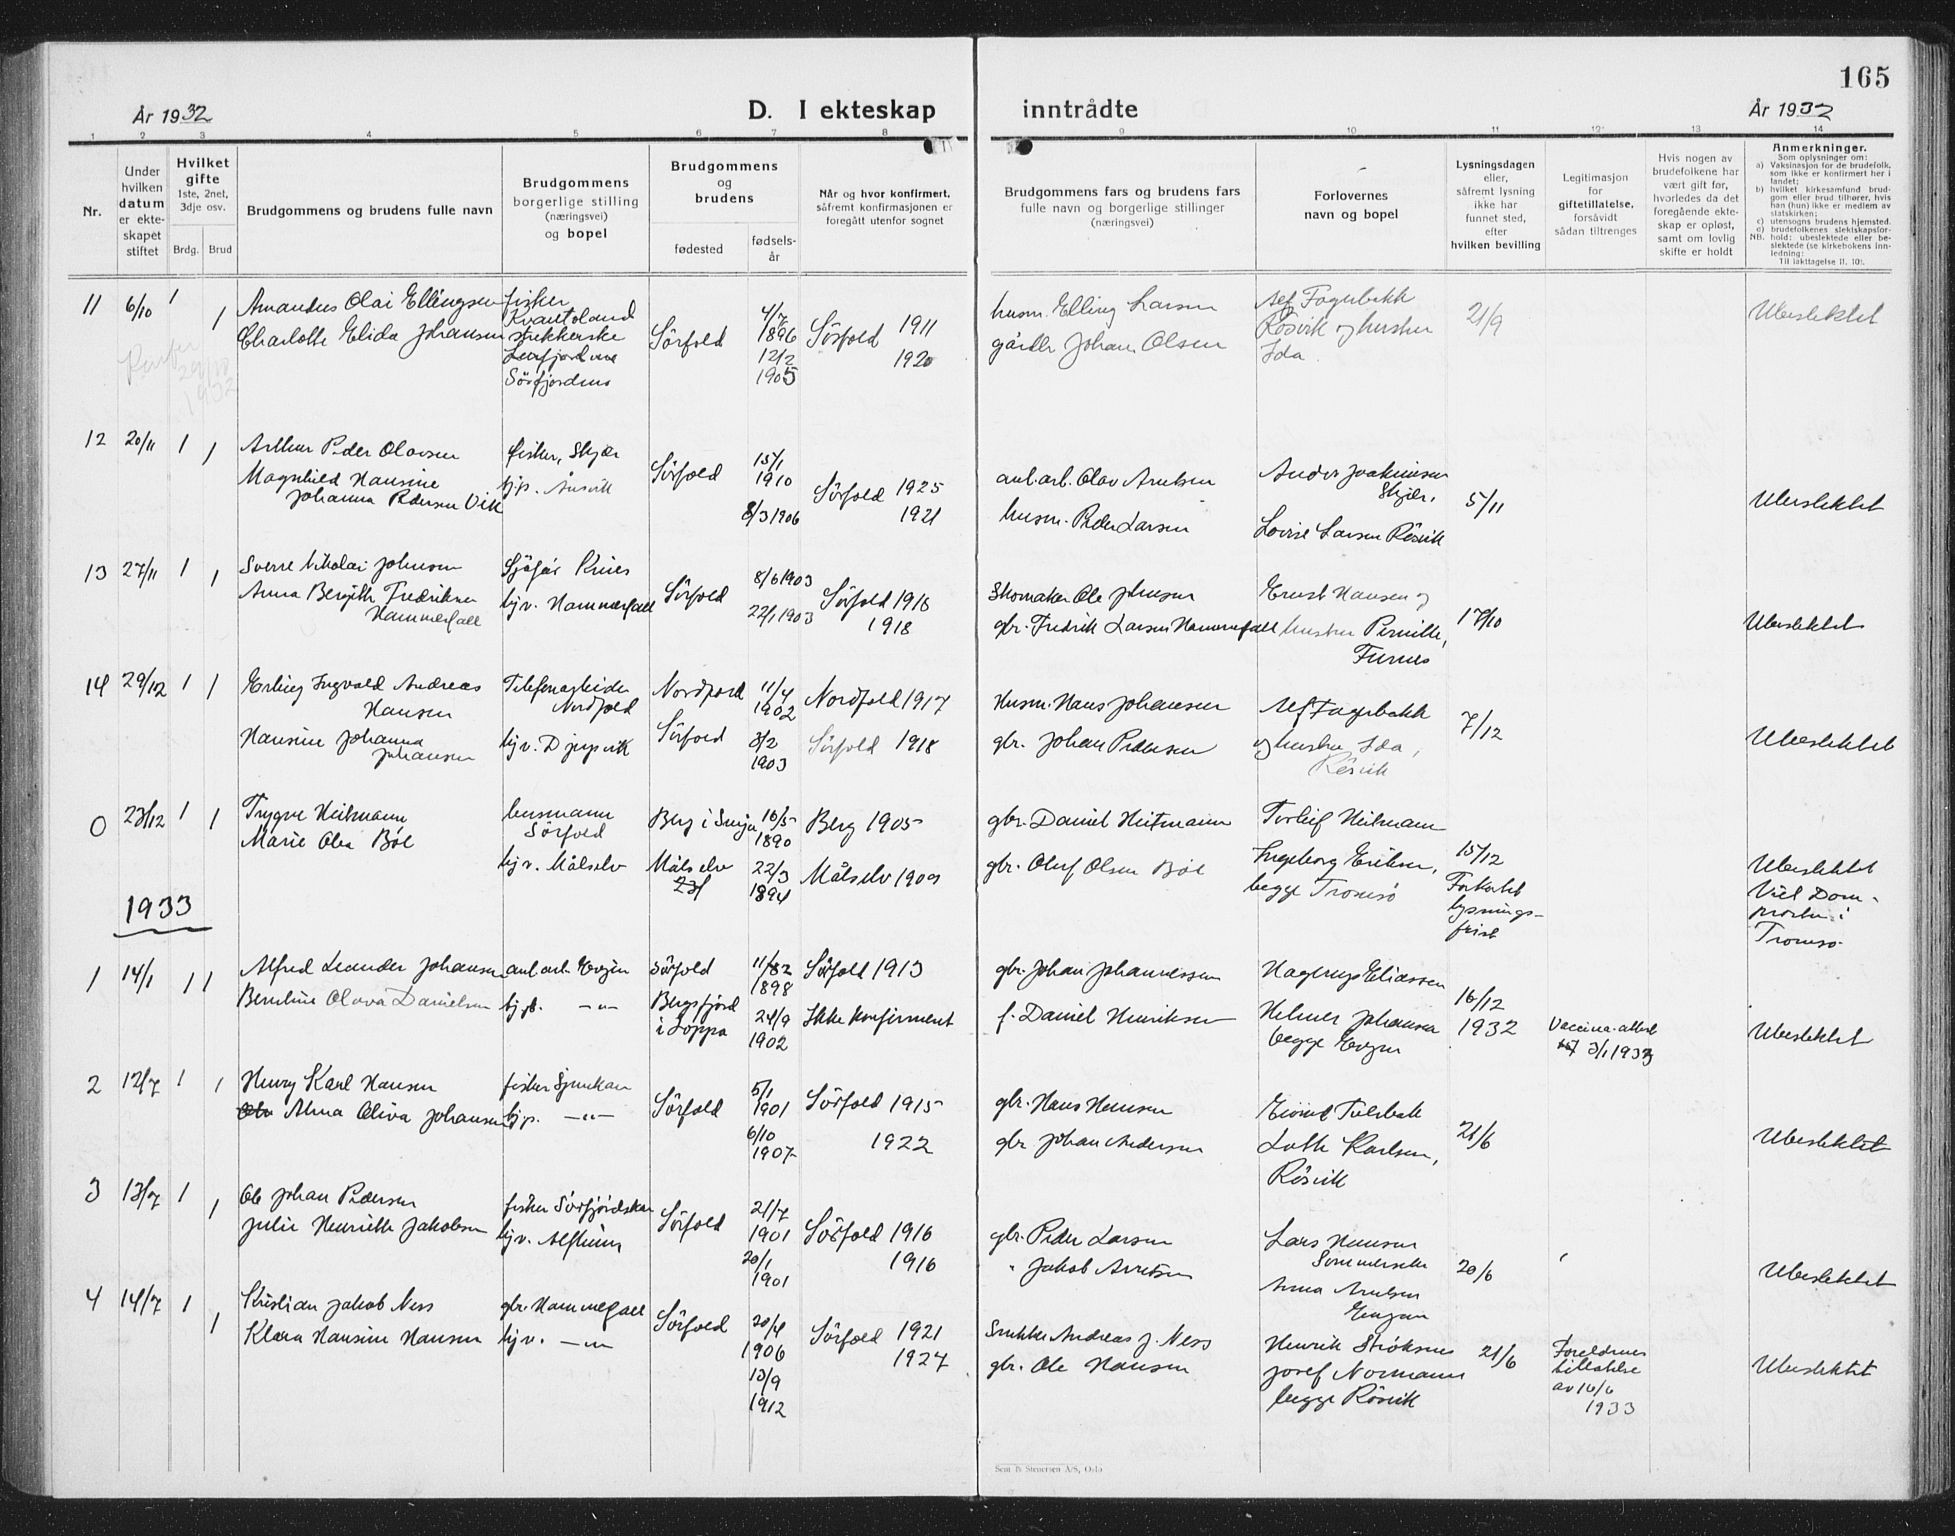 165
År 1932
D. I ekteskap inntrådte
År 1932
1 2 3 4 5 6 7 8 9 10 11 12 13 14
Nr.
Under hvilken datum er ekteskapet stiftet
Hvilket gifte
1ste, 2net, 3dje osv.
Brdg. Brud
Brudgommens og brudens fulle navn
Brudgommens borgerlige stilling (næringsvei) og bopel
Brudgommens og brudens
fødested
fødselsår
Når og hvor konfirmert, såfremt konfirmasjonen er foregått utenfor sognet
Brudgommens fars og brudens fars fulle navn og borgerlige stillinger (næringsvei)
Forlovernes navn og bopel
Lysningsdagen eller, såfremt lysning ikke har funnet sted, efter hvilken bevilling
Legitimasjon for giftetillatelse, forsåvidt sådan tiltrenges
Hvis nogen av brudefolkene har vært gift før, hvorledes da det foregående ekteskap er opløst, samt om lovlig skifte er holdt
Anmerkninger.
Som oplysninger om:
a) Vaksinasjon for de brudefolk, som ikke er konfirmert her i landet;
b) hvilket kirkesamfund brudgom eller brud tilhører, hvis han (hun) ikke er medlem av statskirken;
c) utensogns brudens hjemsted.
d) brudefolkenes slektskapsforhold: ubeslektede eller beslektede (se kirkebokens innledning:
NB.
Til iakttagelse II, 10).
11 6/10 1 1 Amandus Olai Ellingsen fisker
Charlotte Elida Johansen
Sørfold 4/7 1896 12/2 1905 Sørfold 1911 1920
husm. Elling Larsen
gårdbr Johan Olsen
Alf Fagerbakk Rösvik og hustru Ida.
21/9 Ubeslektet
12 20/11 1 1 Arthur Peder Olavsen fisker, Skjær
Magnhild Hansine Johanna Pedersen Vik
Sørfold 15/1 1910 8/3 1906 Sørfold 1925 1921
anl.arb. Olav Arntsen
husm. Peder Larsen
Anders Joakimsen Skjær,
Lovise Larsen Rösvik
5/11 Ubeslektet
13 27/11 1 1 Sverre Nikolai Johnsen
Anna Bergith Fredriksen Hammerfall hjv. Hammerfall
Sørfold 8/6 1903 22/1 1903 Sørfold 1918 1918
Skomaker Ole Johnsen
gbr. Fredrik Larsen Hammerfall
Ernst Hansen og hustru Pernille, Furnes
17/10 Ubeslektet
14 29/12 1 1 Erling Ingvald Andreas Hansen Telefonarbeider Nordfold
Hansine Johanna Johansen hjv. Djupvik
Nordfold 11/4 1902 Nordfold 1917
Sørfold 3/2 1903 Sørfold 1918
Husm. Hans Johansen
gbr. Johan Pedersen
Alf Fagerbakk og hustru Ida, Rösvik
7/12 Ubeslektet
0 23/12 1 1 Trygve Heitmann Sörfold
Marie Olea Böe hjv. Målselv
Berg i Senja 16/5 1890 Berg 1905
Målselv 22/3 1894 Målselv 1909
gbr. Daniel Heitmann
gbr. Oluf Olsen Böe
Torleif Heitmann
Ingeborg Eriksen, begge Tromsö
15/12 Forkortet lysningsfrist
Ubeslektet
Viet Domprosten i Tromsö
1933
1 14/1 1 1 Alfred Leander Johansen anl.arb. Evjen
Berntine Olava Danielsen
Sørfold 1898 Sørfold 1913
Bergsfjord i Loppa 24/9 1902 Ikke konfirmert
gbr. Johan Johannessen
f. Daniel Henriksen
Hagerup Eliassen
Helmer Johansen begge Evjen
16/12 1932
Vaccina.attest 3/1 1933
Ubeslektet
2 12/7 1 1 Henry Karl Hansen
Alma Oliva Johansen
Sørfold 5/1 1901 6/10 1907 Sørfold 1915 1922
gbr. Hans Hansen
gbr Johan Andersen
Lotte Karlsen, Rösvik
21/6 Ubeslektet
3 13/7 1 1 Ole Johan Pedersen
Julie Henriette Jakobsen hjv. Alfheim
Sørfold 21/7 1901 20/1 1901 Sørfold 1916 1916
gbr. Peder Larsen
" Jakob Arntsen
Lars Hansen Sommerset
Anna Arntsen
20/6 Ubeslektet
4 14/7 1 1 Kristian Jakob Ness gbr. Hammerfall
Klara Hansine Hansen hjv. –"–
Sørfold 20/4 1906 13/9 1912 Sørfold 1921 1927
Snekker Andreas J. Ness
gbr. Ole Hansen
Henrik Strøksnes
Josef Normann begge Rösvik
21/6 Foreldrenes tillatelse av 16/6 1933
Ubeslektet
Sem & Stenersen A/S, Oslo